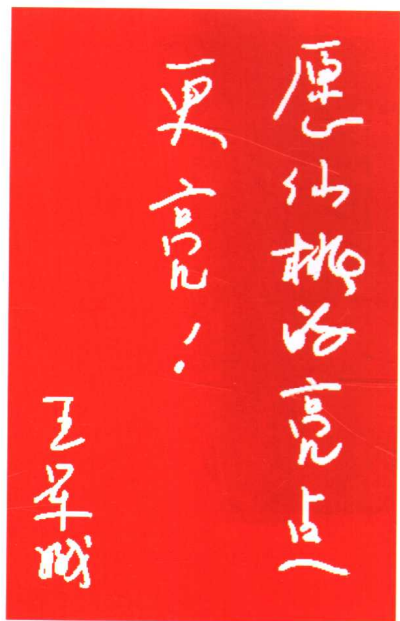 愿仙桃的亮点
更亮！
王军